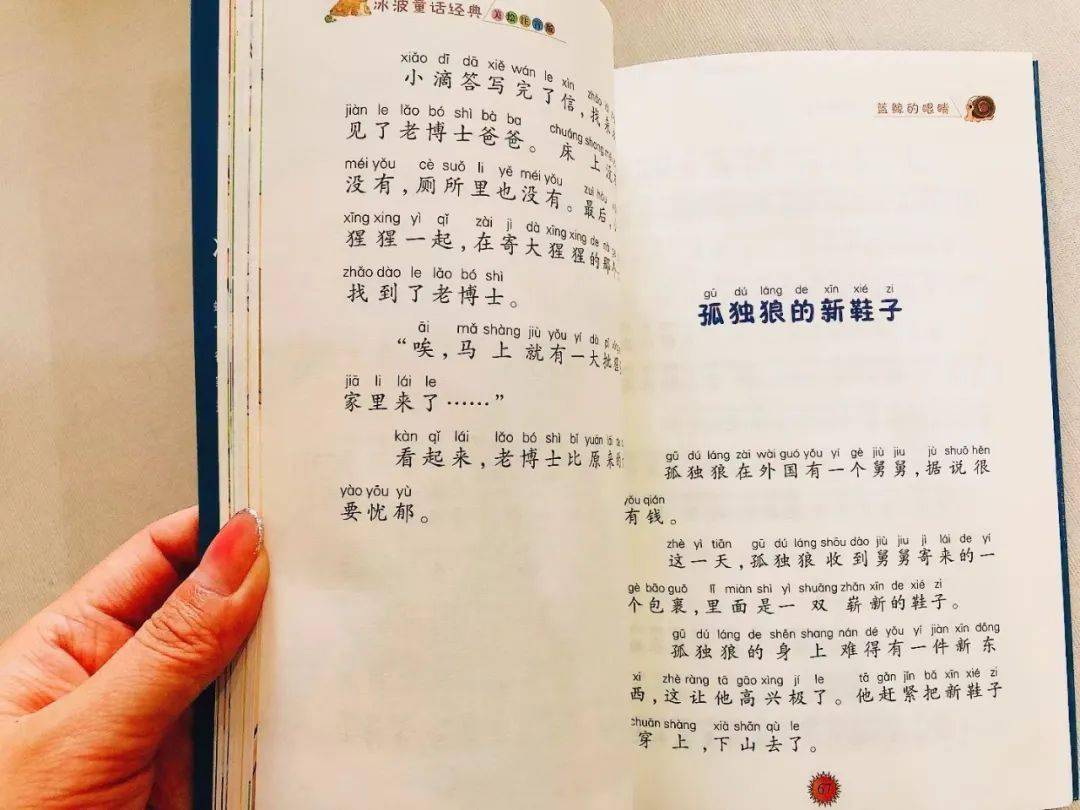 冰波童话经典 美绘注音版
xiǎo dī dā xiě wán le xìn
小滴答写完了信，找来
jiàn le lǎo bó shì bà ba
见了老博士爸爸。床上没
méi yǒu cè suǒ li yě méi yǒu zuì hòu
没有，厕所里也没有。最后，
xīng xing yì qǐ zài jì dà xīng xing de
猩猩一起，在寄大猩猩的那
zhǎo dào le lǎo bó shì
找到了老博士。
āi mǎ shàng jiù yǒu yí dà pī
“唉，马上就有一大批猩
jiā li lái le
家里来了……”
kàn qǐ lái lǎo bó shì bǐ yuán lái de
看起来，老博士比原来的
yào yōu yù
要忧郁。
蓝鲸的眼睛
gū dú láng de xīn xié zi
孤独狼的新鞋子
gū dú láng zài wài guó yǒu yí gè jiù jiu jù shuō hěn
孤独狼在外国有一个舅舅，据说很
yǒu qián
有钱。
zhè yì tiān gū dú láng shōu dào jiù jiu jì lái de yí
这一天，孤独狼收到舅舅寄来的一
gè bāo guǒ lǐ miàn shì yì shuāng zhǎn xīn de xié zi
个包裹，里面是一双崭新的鞋子。
gū dú láng de shēn shang nán dé yǒu yí jiàn xīn dōng
孤独狼的身上难得有一件新东
xi zhè ràng tā gāo xìng jí le tā gǎn jǐn bǎ xīn xié zi
西，这让他高兴极了。他赶紧把新鞋子
chuān shàng xià shān qù le
穿上，下山去了。
67